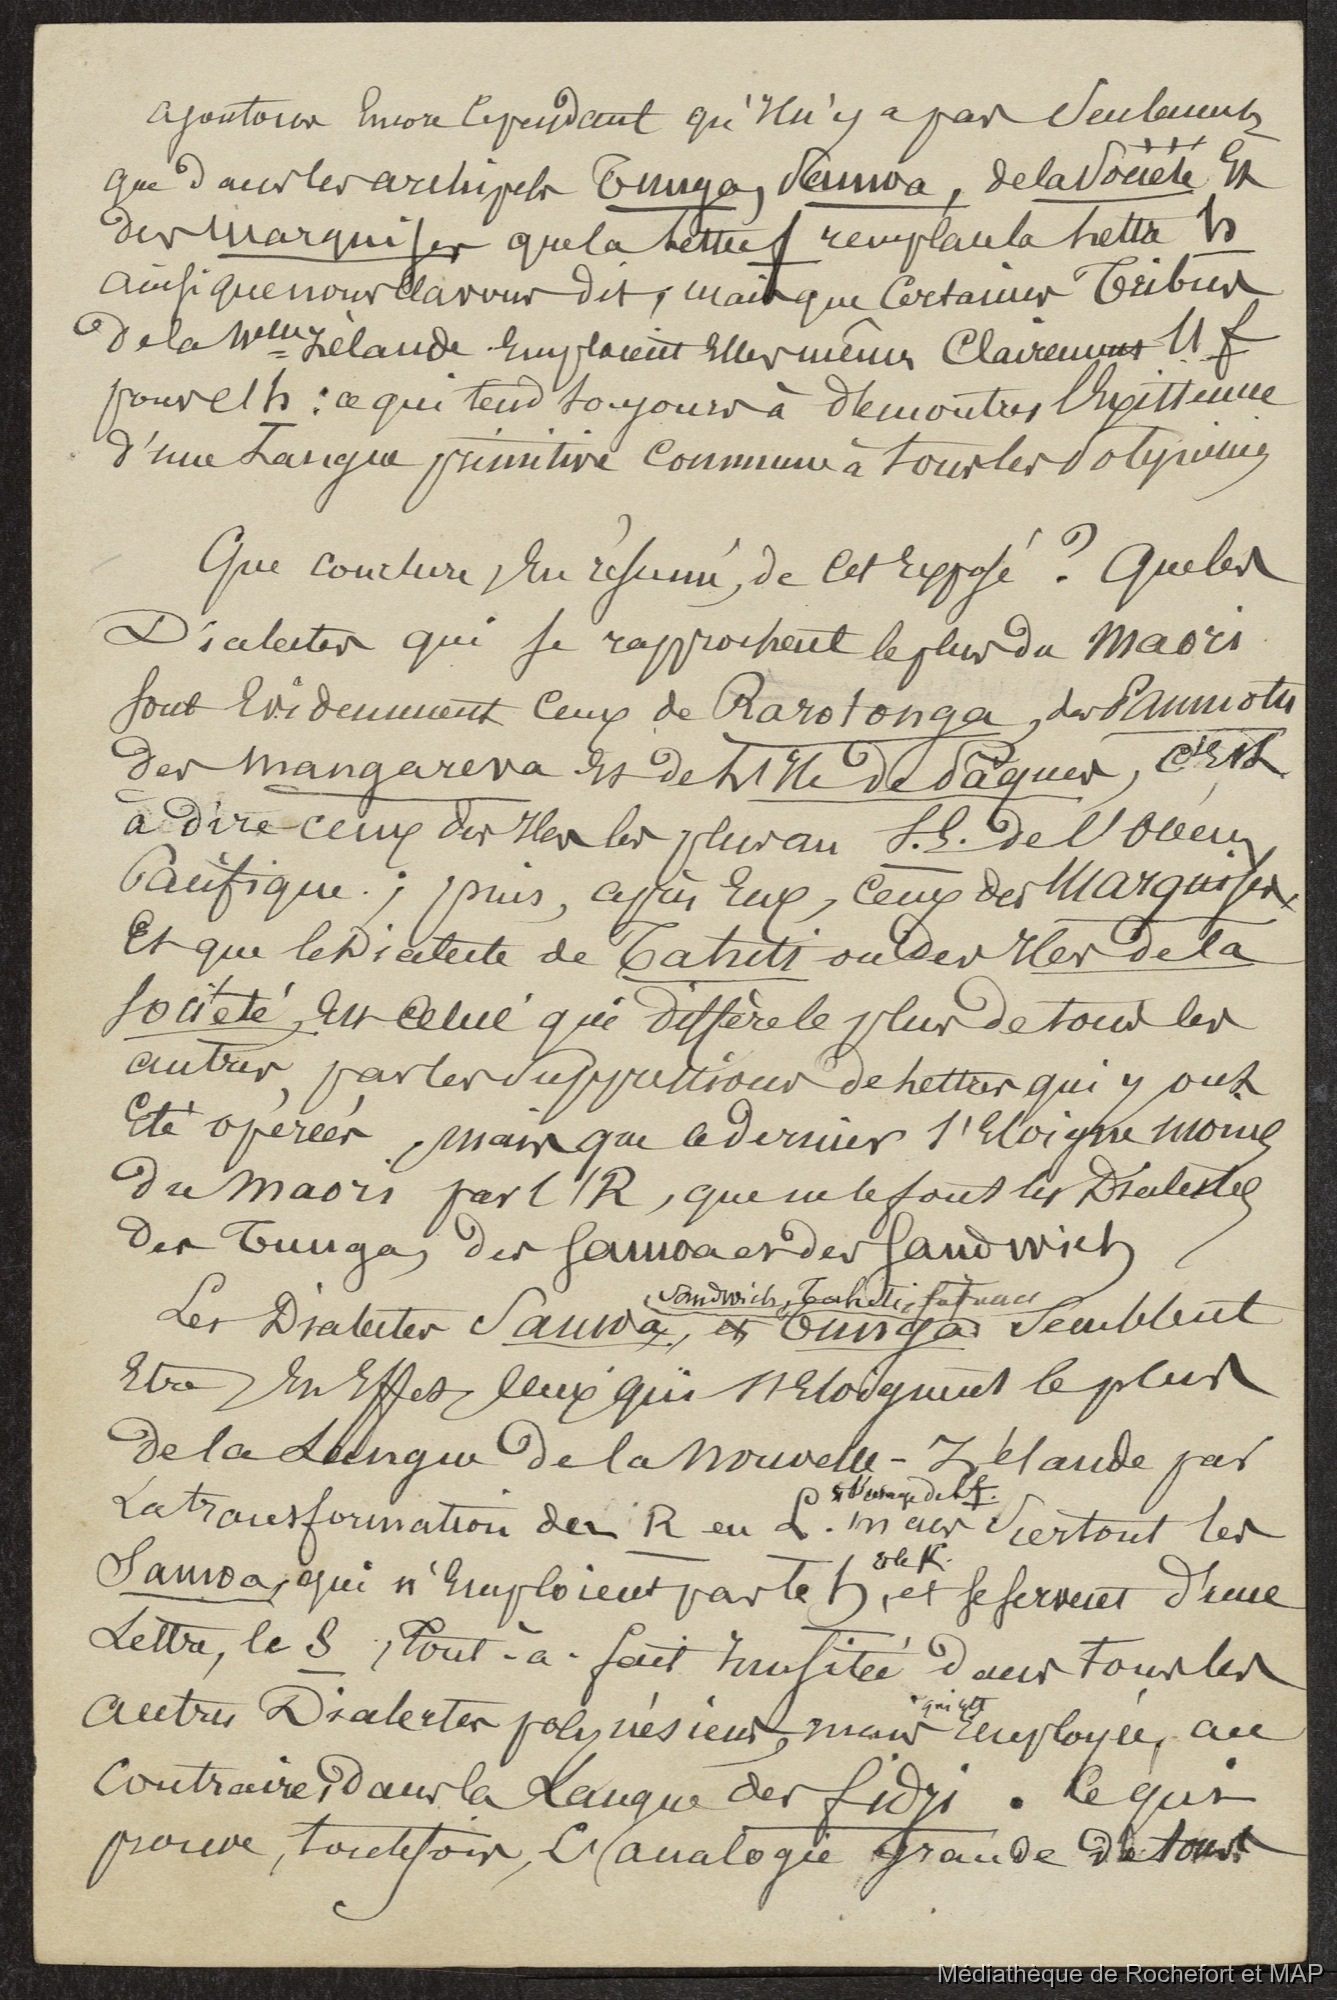 ajoutons Encore Cependant qu'Il n'y a pas Seulement
que dans les archipels Tunga, Samoa, de la Société Et
des Marquises que la Lettre f remplace la Lettre h
ainsi que nous l'avons dit, mais que Certaines Tribus
de la Nelle Zélande Emploient Elles mêmes Clairement l'f
pour el h : ce qui tend toujours à démontrer l'Existence
d'une Langue primitive Commune à tous les Polynésiens
Que conclure, En résumé, de Cet Exposé ? Que les
Dialectes qui se rapprochent le plus du Maori
sont Evidemment Ceux de Rarotonga, des Paumotu
des Mangareva Et de L'Ile de Pâques, C'Est
à dire ceux des Iles les plus au S.E. de l'Océan
Pacifique ; puis, après Eux, Ceux des Marquises,
Et que le Dialecte de Tahiti ou des Iles de la
Société, Est Celui qui diffère le plus de tous les
autres, par les Suppressions de Lettres qui y ont
Eté opérées, mais que ce dernier s'Eloigne moins
du Maori par l'R, que ne le font les Dialectes
des Tunga, des Samoa et des Sandwich
Sandwich, Tahiti, futuna
Les Dialectes Samoa, et Tunga Semblent
Etre, En Effet, Ceux qui s'Eloignent le plus
de la Langue de la Nouvelle-Zélande par
& l'usage de l'f.
La transformation de R en L. mais Surtout les
& le K.
Samoa, qui n'Emploient pas le h, et se servent d'une
Lettre, le S, Tout-à-fait Inusitée dans Tous les
qui est
autres Dialectes polynésiens, mais Employée, au
Contraire, dans la Langue des Fidji. Ce qui
prouve, toutefois, L'analogie grande de tous
Médiathèque de Rochefort et MAP